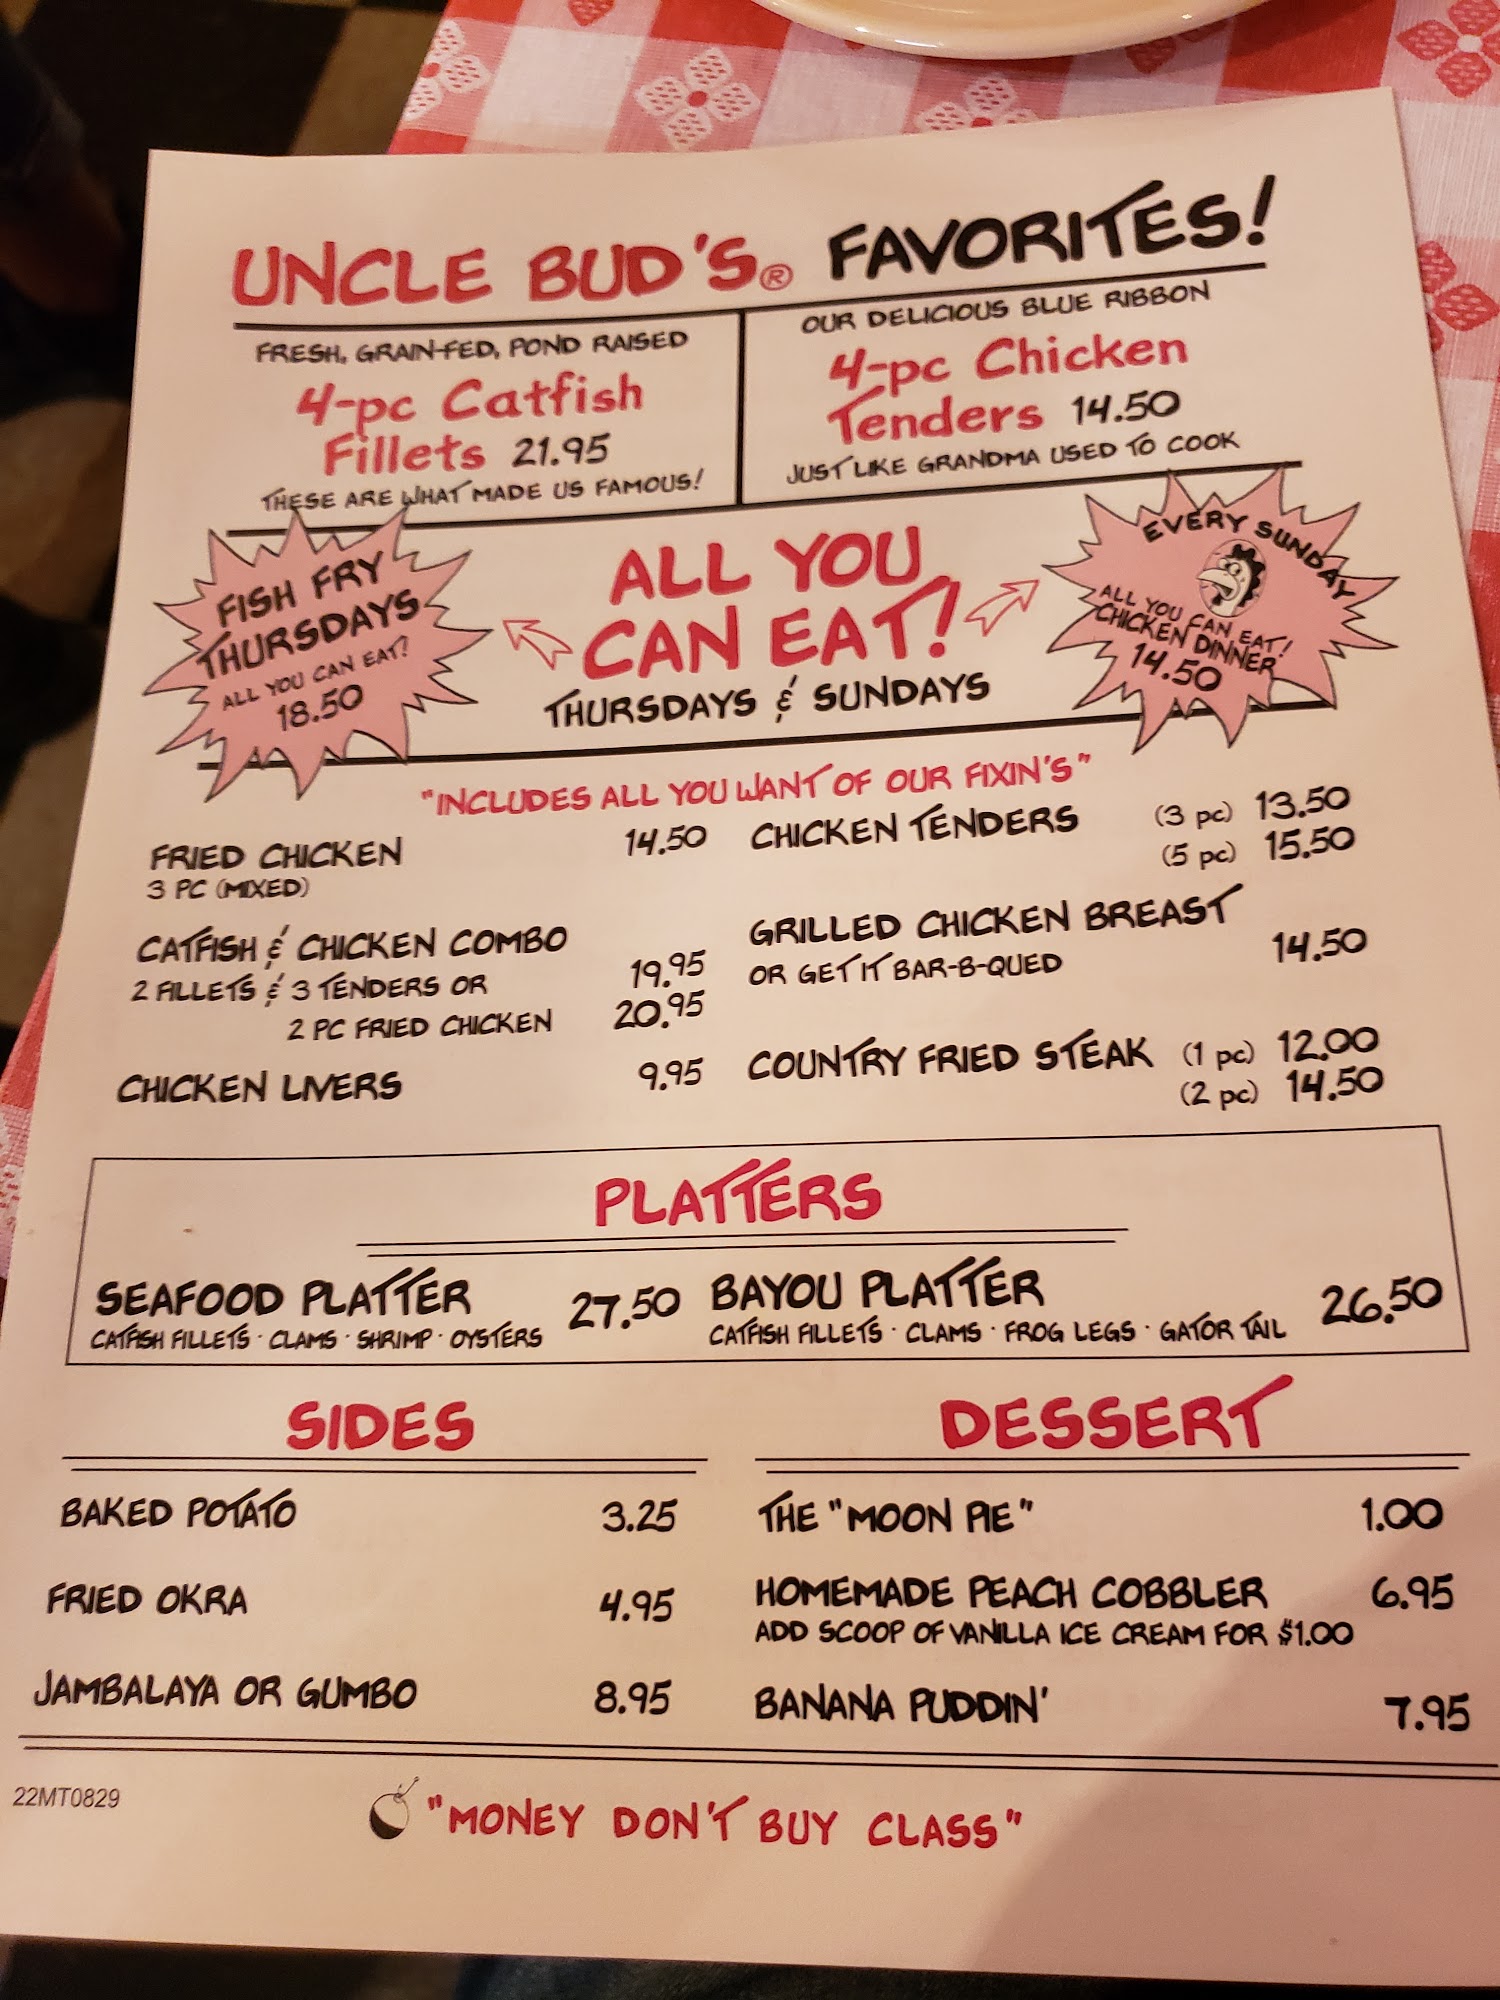 UNCLE BUD'S® FAVORITES!
FRESH, GRAIN-FED, POND RAISED
4-pc Catfish
Fillets 21.95
THESE ARE WHAT MADE US FAMOUS!
OUR DELICIOUS BLUE RIBBON
4-pc Chicken
Tenders 14.50
JUST LIKE GRANDMA USED TO COOK
FISH FRY
THURSDAYS
ALL YOU CAN EAT!
18.50
ALL YOU
CAN EAT!
THURSDAYS & SUNDAYS
EVERY SUNDAY
ALL YOU CAN EAT!
CHICKEN DINNER
14.50
"INCLUDES ALL YOU WANT OF OUR FIXIN'S"
FRIED CHICKEN 14.50
3 PC (MIXED)
CATFISH & CHICKEN COMBO
2 FILLETS & 3 TENDERS OR 19.95
2 PC FRIED CHICKEN 20.95
CHICKEN LIVERS 9.95
CHICKEN TENDERS (3 pc) 13.50
(5 pc) 15.50
GRILLED CHICKEN BREAST
OR GET IT BAR-B-QUED 14.50
COUNTRY FRIED STEAK (1 pc) 12.00
(2 pc) 14.50
PLATTERS
SEAFOOD PLATTER 27.50
CATFISH FILLETS · CLAMS · SHRIMP · OYSTERS
BAYOU PLATTER 26.50
CATFISH FILLETS · CLAMS · FROG LEGS · GATOR TAIL
SIDES
BAKED POTATO 3.25
FRIED OKRA 4.95
JAMBALAYA OR GUMBO 8.95
DESSERT
THE "MOON PIE" 1.00
HOMEMADE PEACH COBBLER 6.95
ADD SCOOP OF VANILLA ICE CREAM FOR $1.00
BANANA PUDDIN' 7.95
22MT0829
"MONEY DON'T BUY CLASS"